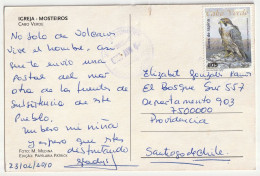 IGREJA - MOSTEIROS
CABO VERDE
No solo de Volcanes
vive el hombre, asi
que te envio una
postal del mar
otra de la fuente de
Subsistencia de este
Pueblo.
Un beso mi niña
y espero que estes
disfrutando
Gladys
23/02/2010
FOTO: M. MEDINA
EDIÇÃO:
Cabo Verde
Elizabet Gonzalez
El Bosque Sur 557
Departamento 903
7500000
Providencia
Santiago de Chile.